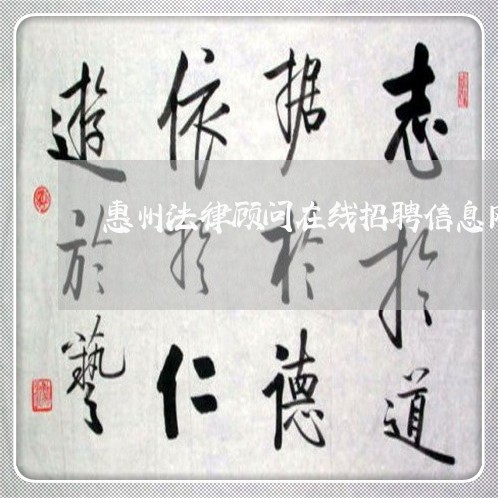 志於道
据於德
依於仁
遊於藝
惠州法律顾问在线招聘信息